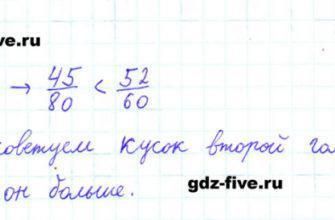 ive.ru
→ 45/80 < 52/60
советуем кусок второй
он больше.
gdz-five.ru